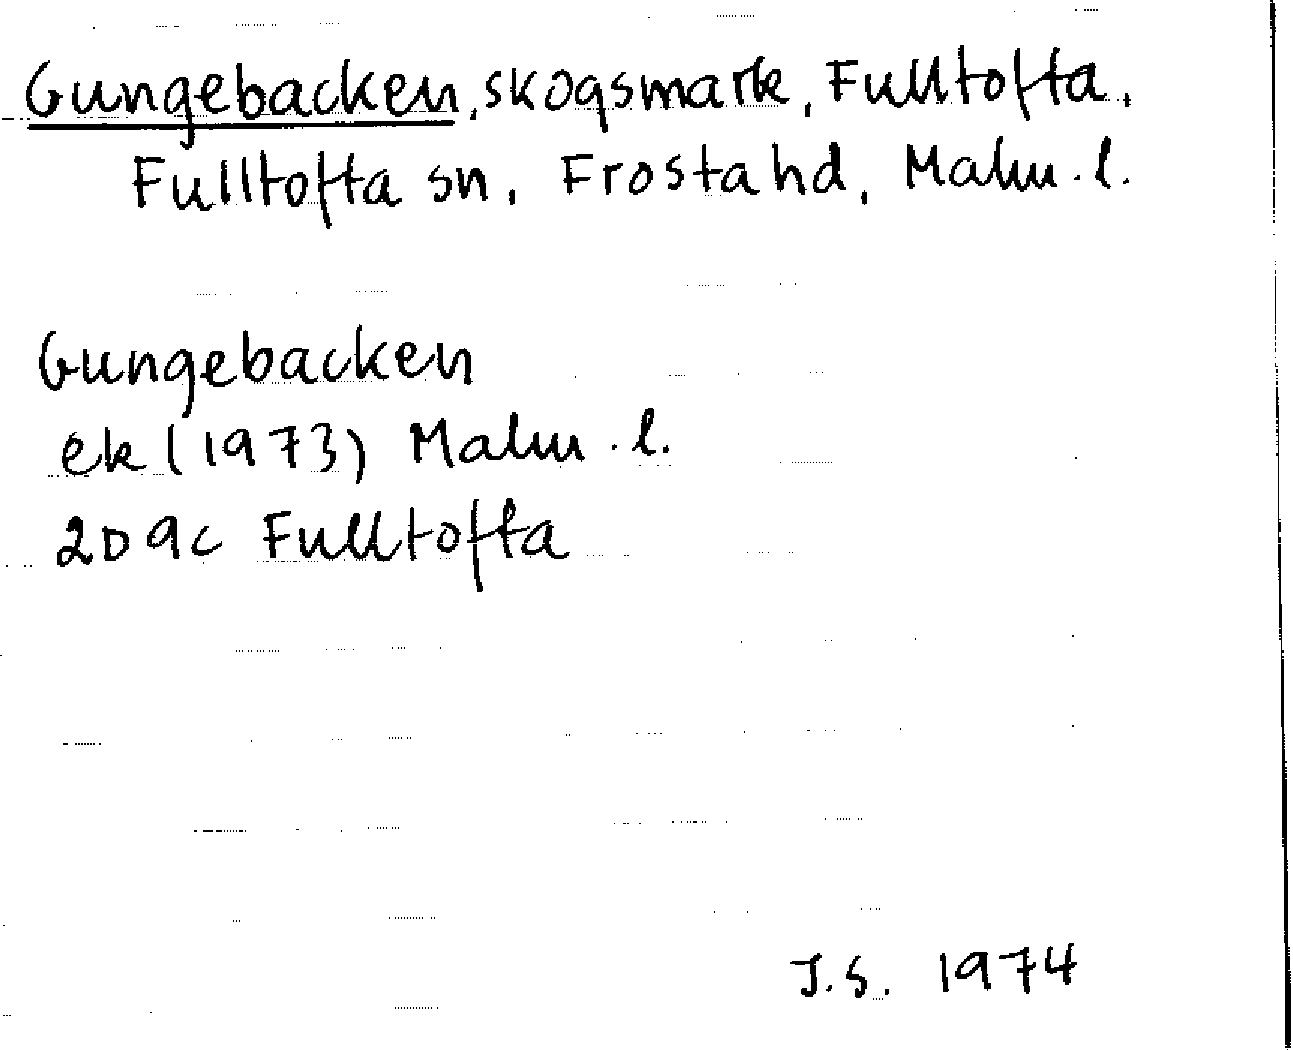 Gungebacken, skogsmark, Fulltofta,
Fulltofta sn, Frosta hd, Malm. l.
Gungebacken
ek (1973) Malm. l.
2D9c Fulltofta
J.S. 1974